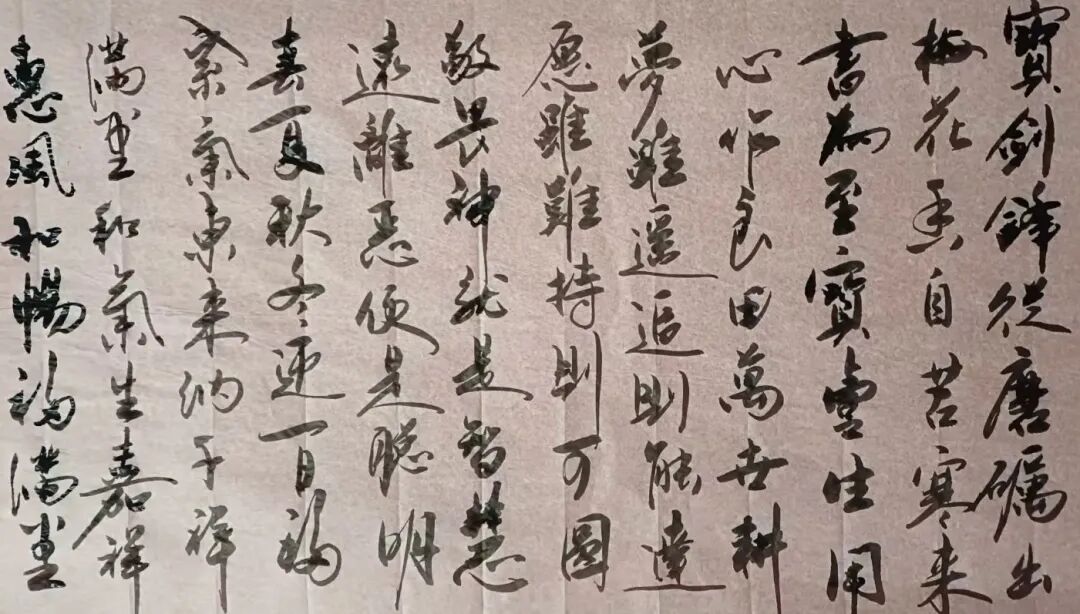 寶劍鋒從磨礪出
梅花香自苦寒來
書為至寶壹生用
心作良田萬世耕
夢雖遥追則能達
愿雖難持則可圓
敬畏神就是智慧
遠離恶便是聪明
春夏秋冬迎百福
紫氣東来納千祥
滿堂和氣生嘉祥
惠風和暢福滿堂